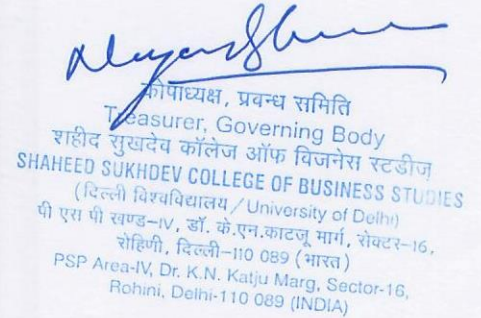 कोषाध्यक्ष, प्रबन्ध समिति
Treasurer, Governing Body
शहीद सुखदेव कॉलेज ऑफ विजनेस स्टडीज़
SHAHEED SUKHDEV COLLEGE OF BUSINESS STUDIES
(दिल्ली विश्वविद्यालय / University of Delhi)
पी एस पी खण्ड-IV, डॉ. के.एन.काटजू मार्ग, सेक्टर-16,
रोहिणी, दिल्ली-110 089 (भारत)
PSP Area-IV, Dr. K.N. Katju Marg, Sector-16,
Rohini, Delhi-110 089 (INDIA)